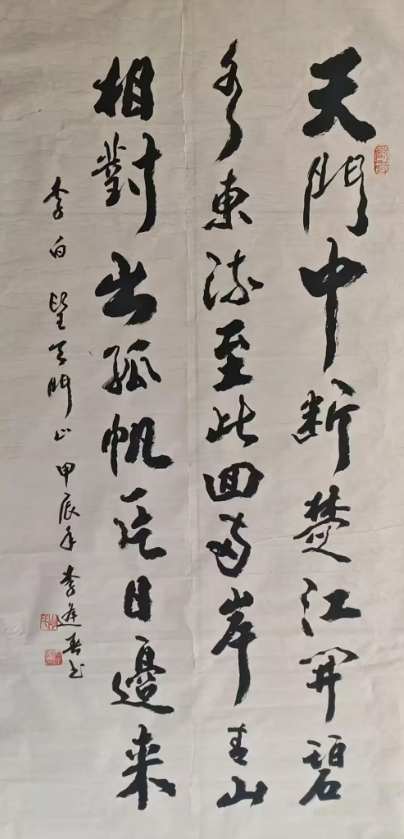 天門中断楚江開碧
水東流至此回兩岸青山
相對出孤帆一片日邊来
李白望天門山 甲辰年 李春书